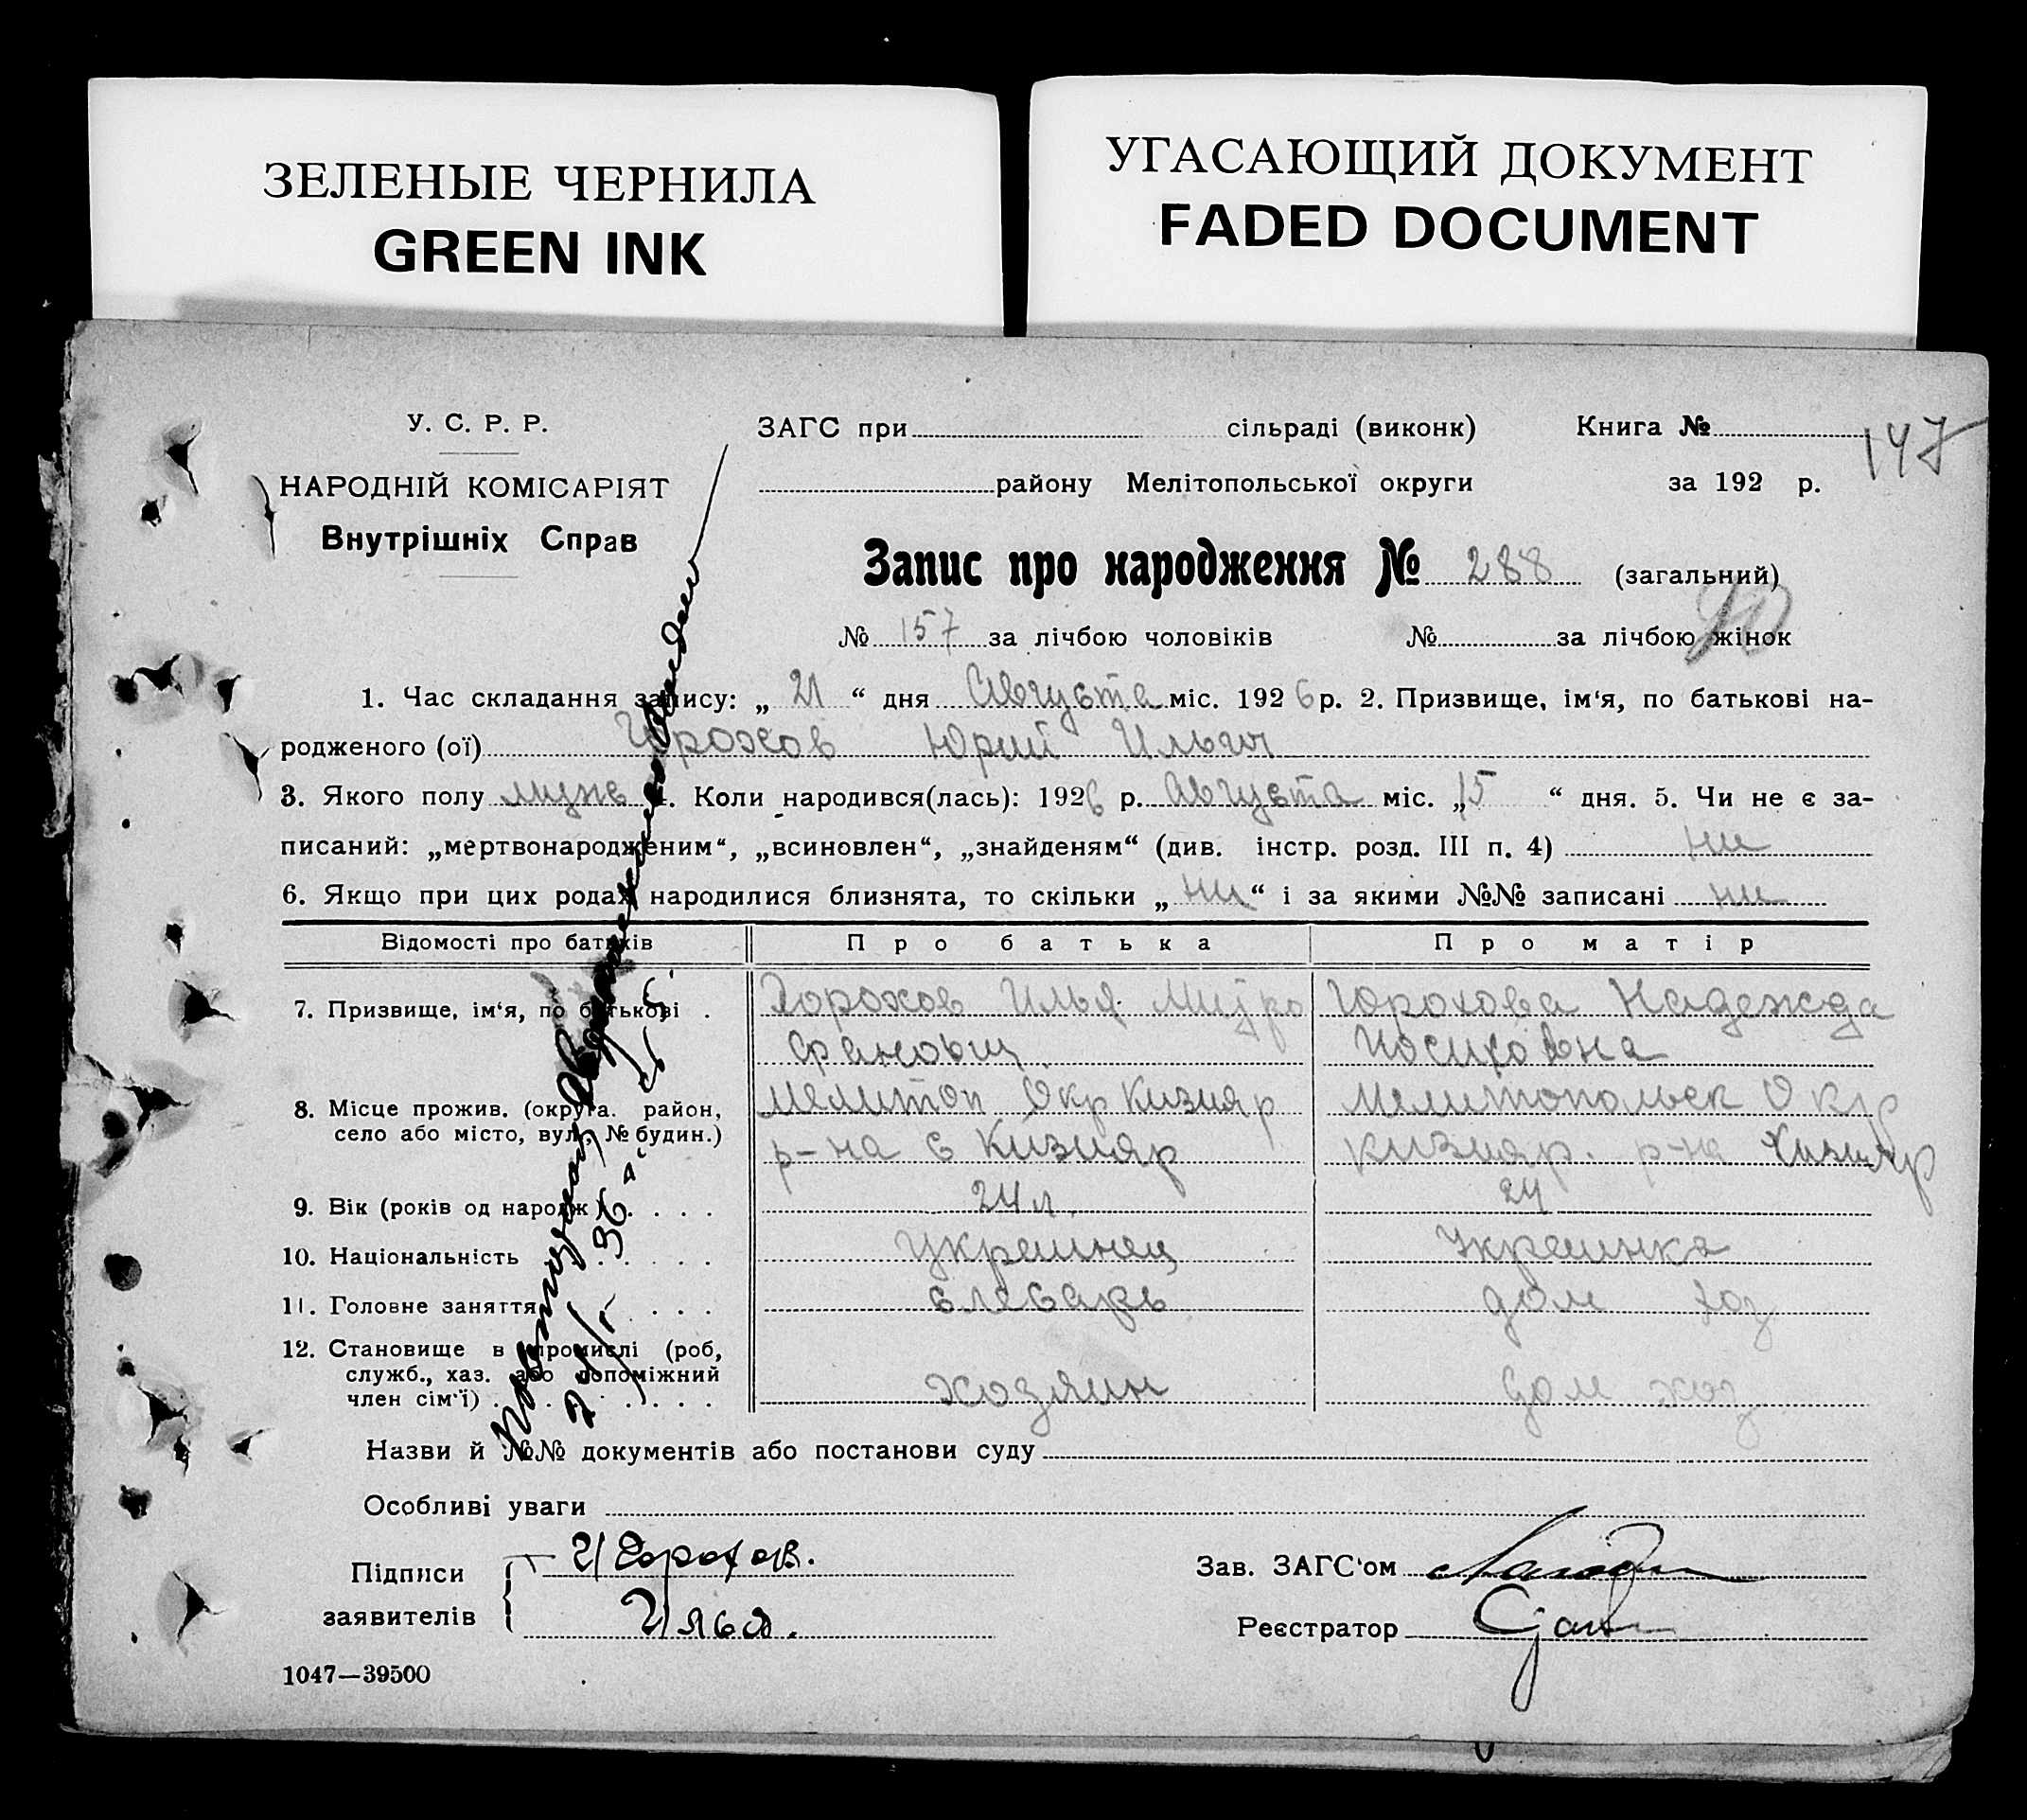 ЗЕЛЕНЫЕ ЧЕРНИЛА
GREEN INK
УГАСАЮЩИЙ ДОКУМЕНТ
FADED DOCUMENT
У. С. Р. Р.
НАРОДНІЙ КОМІСАРІЯТ
Внутрішніх Справ
ЗАГС при сільраді (виконк) Книга №
147
району Мелітопольської округи за 192 р.
Запис про народження № 288 (загальний)
№ 157 за лічбою чоловіків № за лічбою жінок
1. Час складання запису: „ 21 “ дня Августа міс. 1926 р. 2. Призвище, ім‘я, по батькові на-
родженого (ої) Горохов Юрий Ильич
3. Якого полу муж 4. Коли народився(лась): 1926 р. Августа міс. „ 15 “ дня. 5. Чи не є за-
писаний: „мертвонародженим“, „всиновлен“, „знайденям“ (див. інстр. розд. III п. 4) ни
6. Якщо при цих родах народилися близнята, то скільки „ ни “ і за якими №№ записані ни
Відомості про батьків Про батька Про матір
7. Призвище, ім‘я, по батькові . Горохов Илья Митро Горохова Надежда
фанович
8. Місце прожив. (округа. район, Мелитоп Окр Кизияр Мелитопольск Окр
село або місто, вул., № будин.) р-на с Кизияр Кизияр. р-на Кизияр
9. Вік (років од народж.) 24 л. 24
10. Національність украинец Украинка
11. Головне заняття слесарь дом хоз
12. Становище в промислі (роб, служб., хаз. або допоміжний член сім‘ї) хозяин дом хоз
Назви й №№ документів або постанови суду
Особливі уваги
Підписи заявителів Горохов.
Илья.
Зав. ЗАГС‘ом
Реєстратор
1047—39500